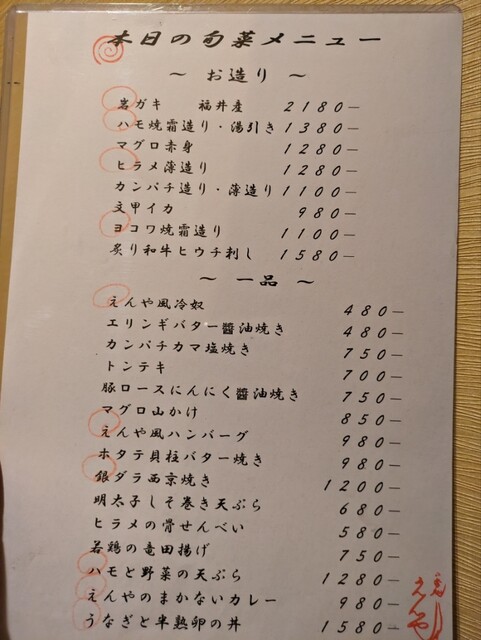 本日の旬菜メニュー
～ お造り ～
岩ガキ 福井産 2180―
ハモ焼霜造り・湯引き 1380―
マグロ赤身 1280―
ヒラメ薄造り 1280―
カンパチ造り・薄造り 1100―
文甲イカ 980―
ヨコワ焼霜造り 1100―
炙り和牛ヒウチ刺し 1580―
～ 一品 ～
えんや風冷奴 480―
エリンギバター醬油焼き 480―
カンパチカマ塩焼き 750―
トンテキ 700―
豚ロースにんにく醬油焼き 750―
マグロ山かけ 850―
えんや風ハンバーグ 980―
ホタテ貝柱バター焼き 980―
銀ダラ西京焼き 1200―
明太子しそ巻き天ぷら 680―
ヒラメの骨せんべい 580―
若鶏の竜田揚げ 750―
ハモと野菜の天ぷら 1280―
えんやのまかないカレー 980―
うなぎと半熟卵の丼 1580―
えんや